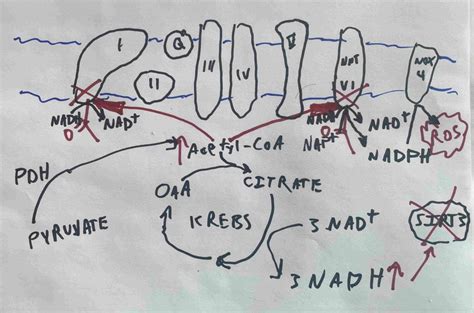 I Q III IV V NNT VI NOX 4
II
NADH NAD+ NADH NAD+ NAD+ ROS
O O NADPH
Acetyl-CoA
PDH
OAA CITRATE
PYRUVATE KREBS 3 NAD+ SIRT3
3 NADH